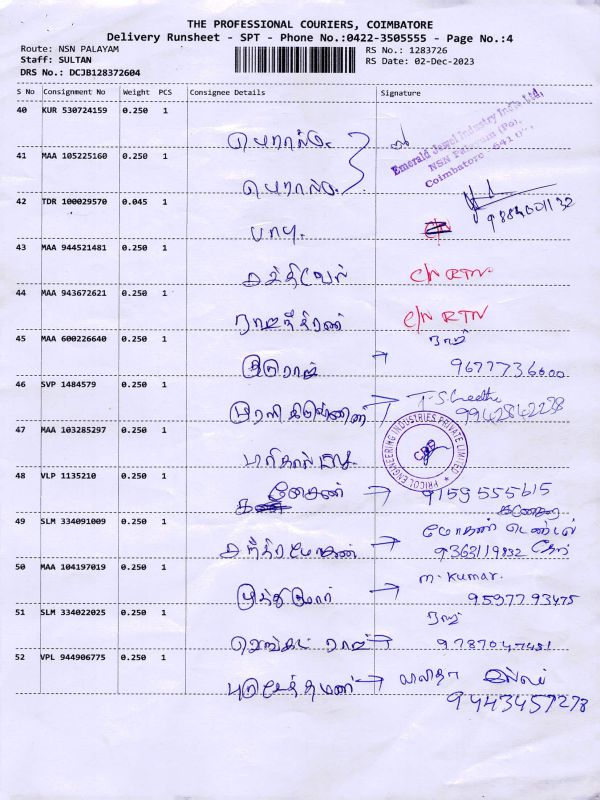 THE PROFESSIONAL COURIERS, COIMBATORE
Delivery Runsheet - SPT - Phone No.:0422-3505555 - Page No.:4
Route: NSN PALAYAM
Staff: SULTAN
DRS No.: DCJB128372604
RS No.: 1283726
RS Date: 02-Dec-2023
S No Consignment No Weight PCS Consignee Details Signature
40 KUR 530724159 0.250 1
Emerald Jewel Industry India Ltd,
NSN Palayam (Po),
Coimbatore
41 MAA 105225160 0.250 1
42 TDR 100029570 0.045 1
9884001132
பாபு.
43 MAA 944521481 0.250 1
சக்திவேல் C/N RTN
44 MAA 943672621 0.250 1
C/N RTN
45 MAA 600226640 0.250 1
ராஜ்
9677736600
46 SVP 1484579 0.250 1
9942842238
47 MAA 103285297 0.250 1
PRICOL ENGINEERING INDUSTRIES PRIVATE LIMITED
48 VLP 1135210 0.250 1
கணேசன் 9159555615
49 SLM 334091009 0.250 1
சந்திரமோகன் 9363119832
50 MAA 104197019 0.250 1
முத்துகுமார் M. Kumar.
9597793475
51 SLM 334022025 0.250 1
ராஜ்
வெங்கட் ராஜ் 9787047481
52 VPL 944906775 0.250 1
லலிதா
9443457278